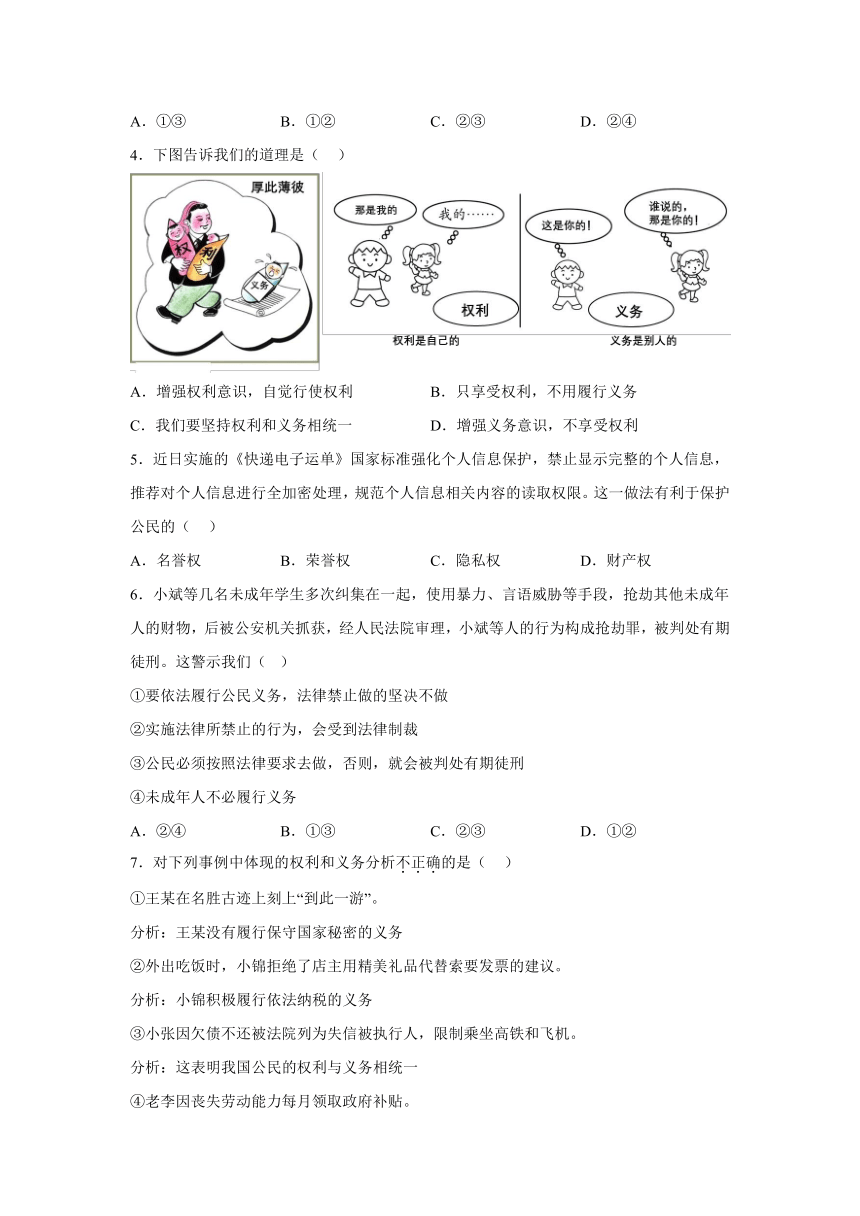 A．①③ B．①② C．②③ D．②④
4．下图告诉我们的道理是（ ）
厚此薄彼
权
利
义务
那是我的
我的……
权利
权利是自己的
这是你的！
谁说的，
那是你的！
义务
义务是别人的
A．增强权利意识，自觉行使权利 B．只享受权利，不用履行义务
C．我们要坚持权利和义务相统一 D．增强义务意识，不享受权利
5．近日实施的《快递电子运单》国家标准强化个人信息保护，禁止显示完整的个人信息，
推荐对个人信息进行全加密处理，规范个人信息相关内容的读取权限。这一做法有利于保护
公民的（ ）
A．名誉权 B．荣誉权 C．隐私权 D．财产权
6．小斌等几名未成年学生多次纠集在一起，使用暴力、言语威胁等手段，抢劫其他未成年
人的财物，后被公安机关抓获，经人民法院审理，小斌等人的行为构成抢劫罪，被判处有期
徒刑。这警示我们（ ）
①要依法履行公民义务，法律禁止做的坚决不做
②实施法律所禁止的行为，会受到法律制裁
③公民必须按照法律要求去做，否则，就会被判处有期徒刑
④未成年人不必履行义务
A．②④ B．①③ C．②③ D．①②
7．对下列事例中体现的权利和义务分析不正确的是（ ）
①王某在名胜古迹上刻上“到此一游”。
分析：王某没有履行保守国家秘密的义务
②外出吃饭时，小锦拒绝了店主用精美礼品代替索要发票的建议。
分析：小锦积极履行依法纳税的义务
③小张因欠债不还被法院列为失信被执行人，限制乘坐高铁和飞机。
分析：这表明我国公民的权利与义务相统一
④老李因丧失劳动能力每月领取政府补贴。